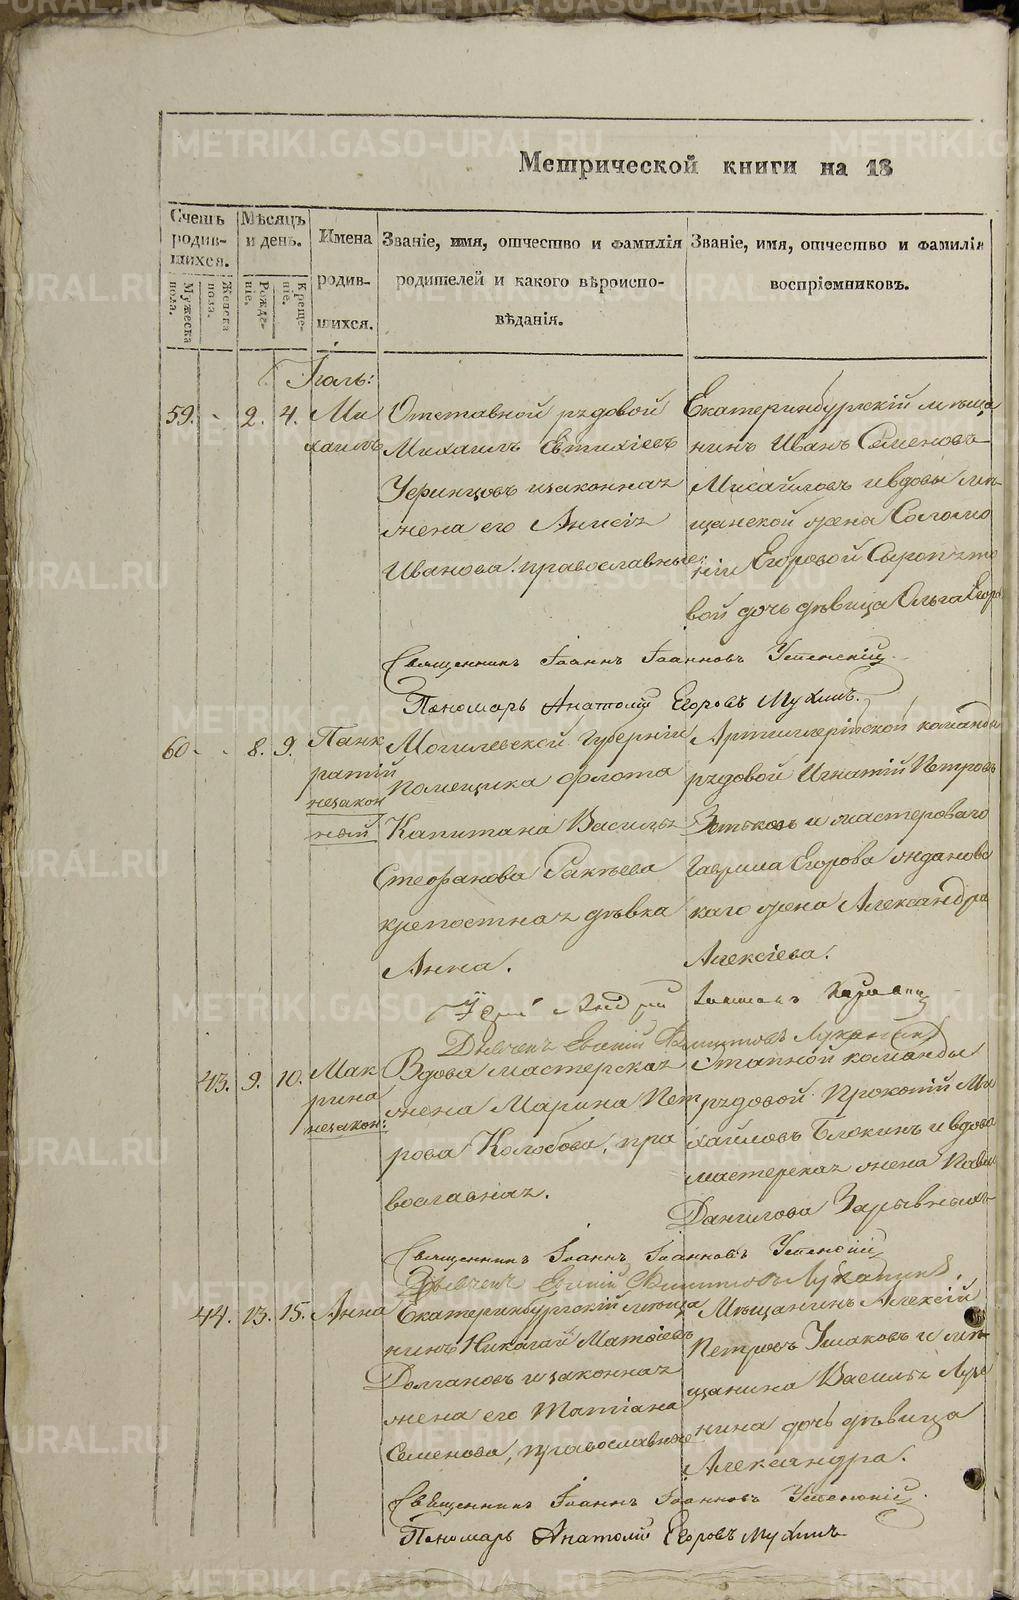 METRIKI.GASO-URAL.RU
Метрической книги на 18
Счетъ родив-шихся.
Мужеска пола.
Женска пола.
Мѣсяцъ и день.
Рожде-ніе.
Креще-ніе.
Имена родив-шихся.
Званіе, имя, отчество и фамилія родителей и какого вѣроиспо-вѣданія.
Званіе, имя, отчество и фамилія воспріемниковъ.
Іюль:
59. - 2. 4. Ми
хаилъ
Отставной рядовой
Михаилъ Евтихіевъ
и законная
жена его Анисія
Иванова. православные.
Екатеринбургскій мѣща
нинъ Иванъ Семеновъ
Мисайловъ и вдовы мѣ
щанской жена Соломо
ніи Егоровой Сыропято
вой дочь дѣвица Ольга Егоро
Священникъ Іоаннъ Іоанновъ Успенскій
Пономарь Анатолій Егоровъ Мухинъ.
60 - - 8. 9. Панк
ратій
незакон
ной
Могилевской Губерніи
помещика флота
Капитана Василья
Стефанова Ракѣева
крепостная дѣвка
Анна.
Артиллерійской команды
рядовой Игнатій Петровъ
и мастероваго
Гаврила Егорова Ждановс
каго жена Александра
Алексіева.
Іерей Андрей
Дьячекъ Евгеній Филиповъ Луканинъ
43. 9. 10. Мак
рина
незакон:
Вдова мастерская
жена Марина Пет
рова Колобова, пра
вославная.
Етапной команды
рядовой Прокопій Ми
хайловъ Блокинъ и вдова
мастерская жена
Данилова Зарывныхъ
Священникъ Іоаннъ Іоанновъ Успенскій
Дьячекъ Евгеній Филиповъ Луканинъ.
44. 13. 15. Анна
Екатеринбургскій мѣща
нинъ Николай Матѳіевъ
Долгановъ и законная
жена его Татіана
Семенова, православные
Мѣщанинъ Алексій
Петровъ Ушаковъ и мѣ
щанина Василья
нина дочь дѣвица
Александра.
Священникъ Іоаннъ Іоанновъ Успенскій.
Пономарь Анатолій Егоровъ Мухинъ